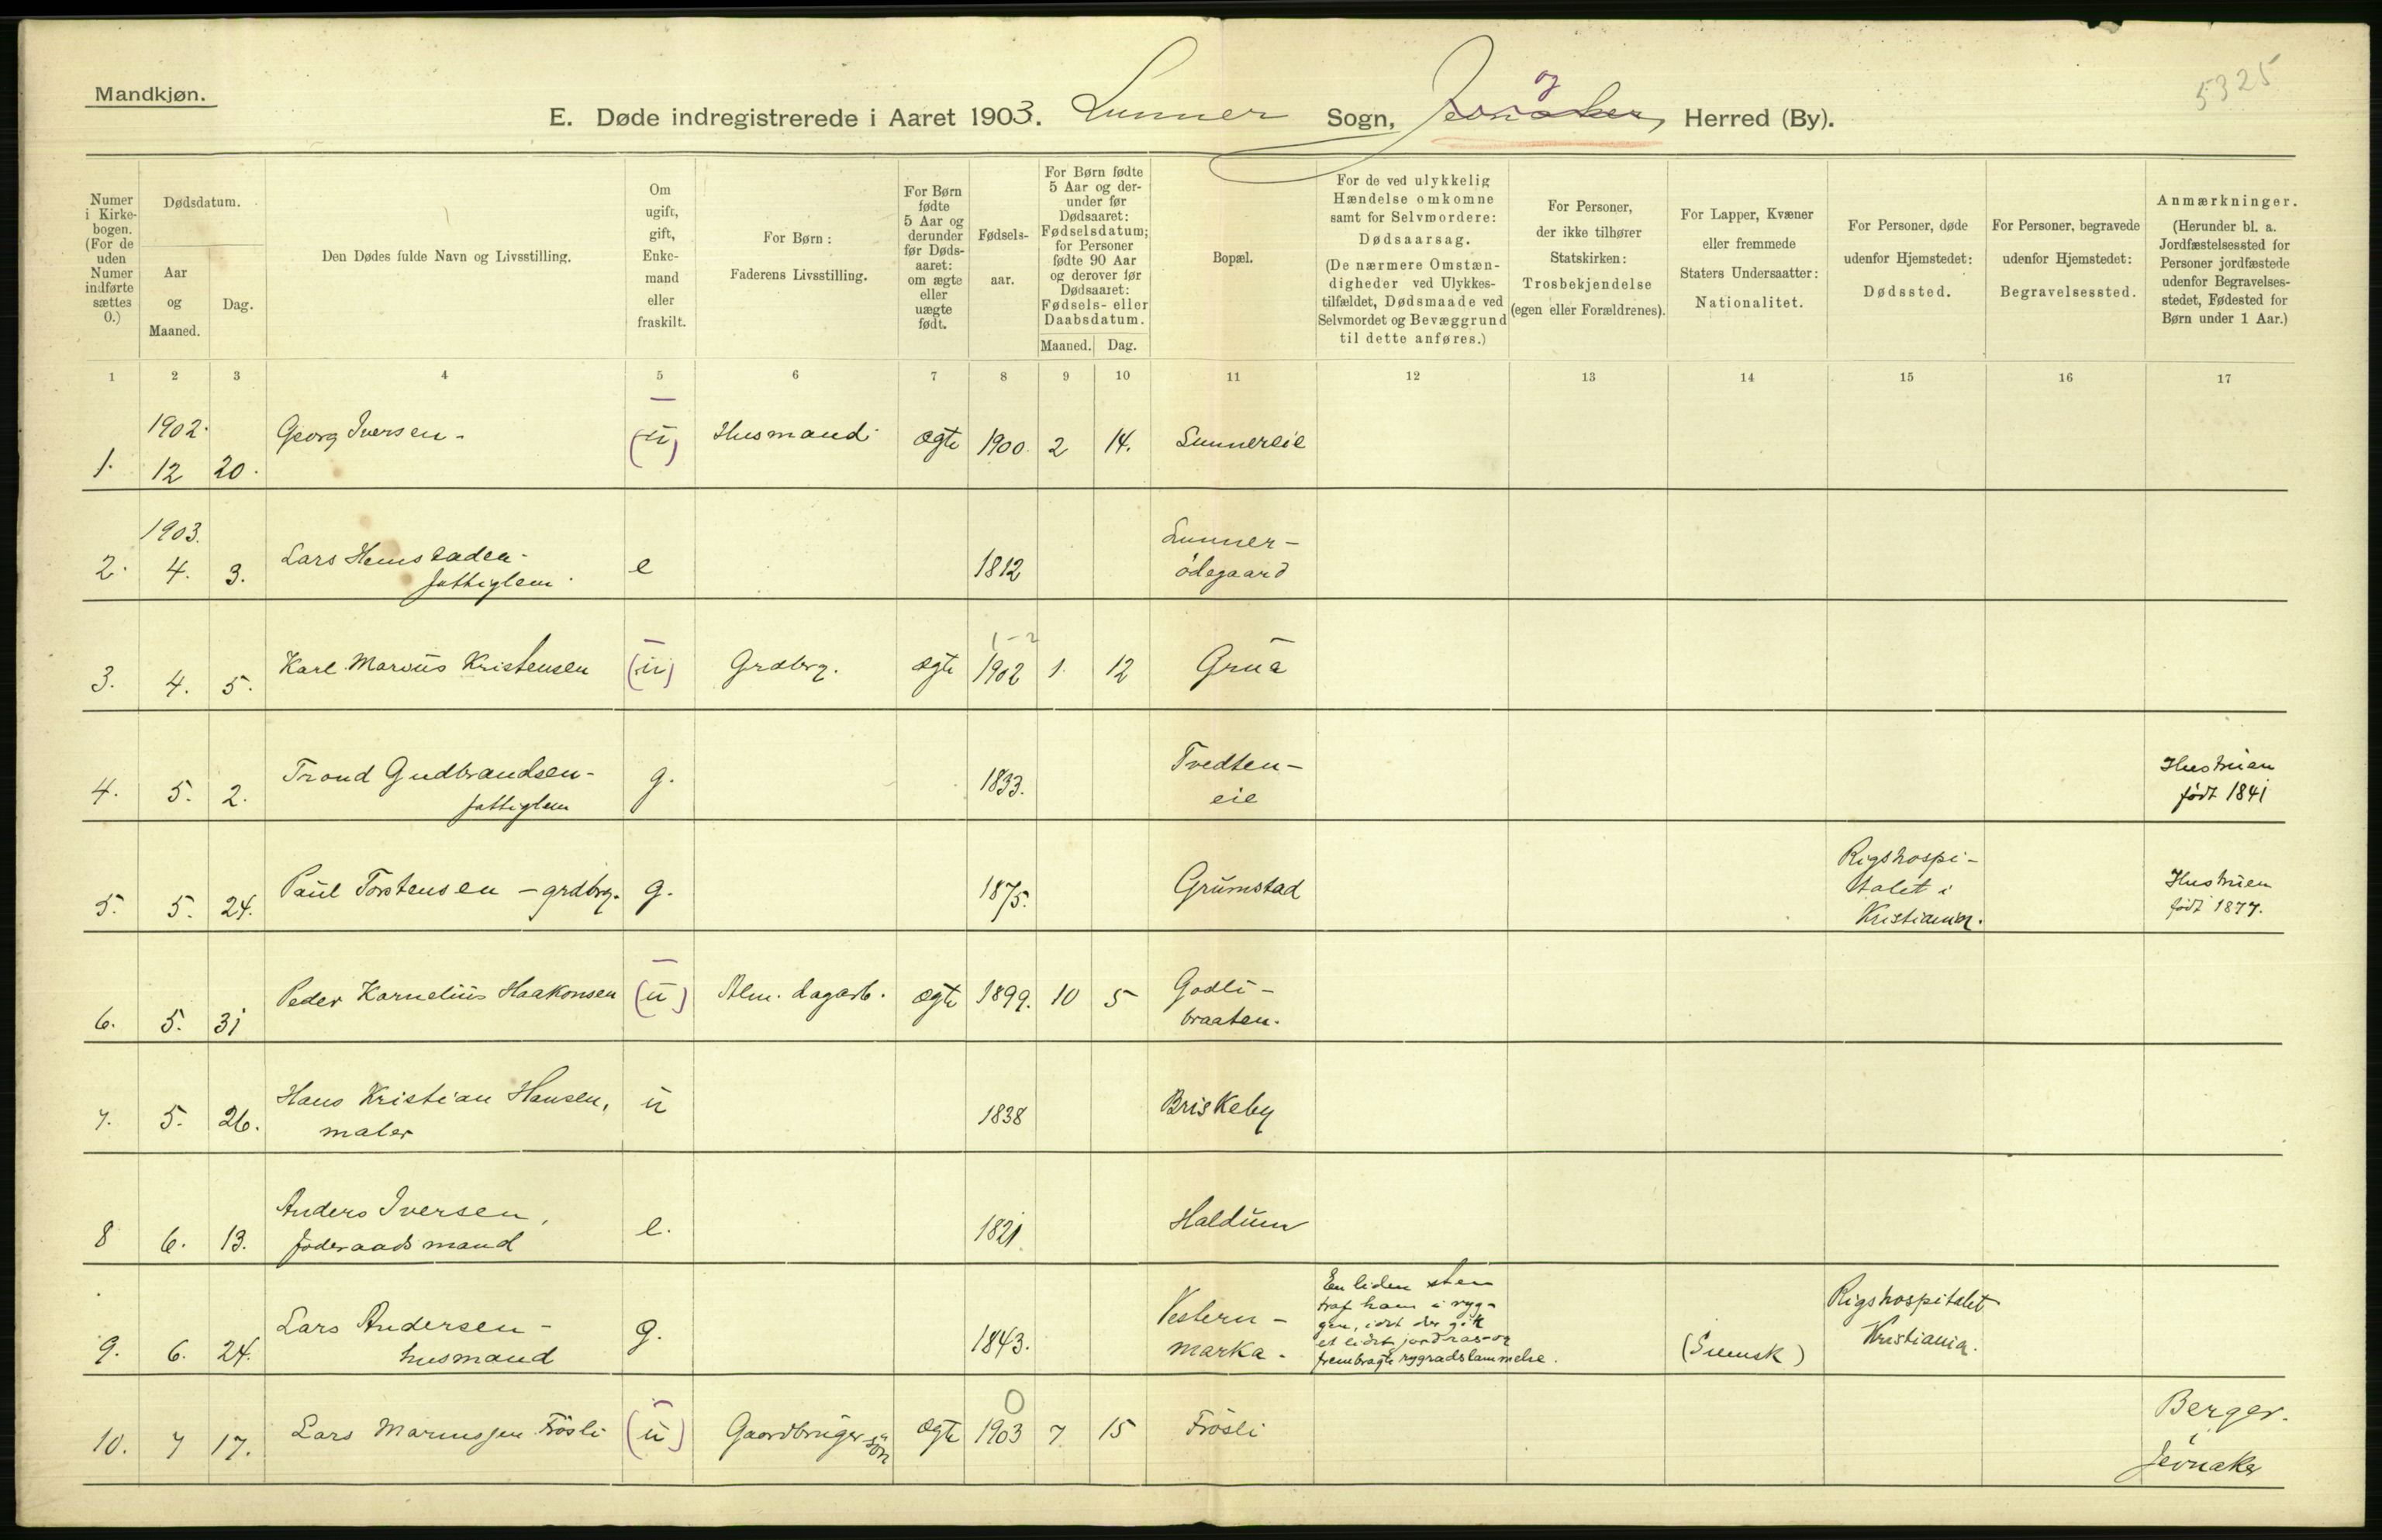 Mandkjøn.
5325
E. Døde indregistrerede i Aaret 1903. Lunner Sogn, Jevnaker, Herred (By).
og
Numer i Kirke-bogen. (For de uden Numer indførte sættes 0.)
Dødsdatum.
Aar og Maaned.
Dag.
Den Dødes fulde Navn og Livsstilling.
Om ugift, gift, Enke-mand eller fraskilt.
For Børn: Faderens Livsstilling.
For Børn fødte 5 Aar og derunder før Døds-aaret: om ægte eller uægte født.
Fødsels-aar.
For Børn fødte 5 Aar og der-under før Dødsaaret: Fødselsdatum; for Personer fødte 90 Aar og derover før Dødsaaret: Fødsels- eller Daabsdatum.
Maaned. Dag.
Bopæl.
For de ved ulykkelig Hændelse omkomne samt for Selvmordere: Dødsaarsag. (De nærmere Omstæn-digheder ved Ulykkes-tilfældet, Dødsmaade ved Selvmordet og Bevæggrund til dette anføres.)
For Personer, der ikke tilhører Statskirken: Trosbekjendelse (egen eller Forældrenes).
For Lapper, Kvæner eller fremmede Staters Undersaatter: Nationalitet.
For Personer, døde udenfor Hjemstedet: Dødssted.
For Personer, begravede udenfor Hjemstedet: Begravelsessted.
Anmærkninger. (Herunder bl. a. Jordfæstelsessted for Personer jordfæstede udenfor Begravelses-stedet, Fødested for Børn under 1 Aar.)
1 2 3 4 5 6 7 8 9 10 11 12 13 14 15 16 17
1902.
1. 12 20. Georg Iversen - (u) Husmand ægte 1900. 2 14. Lunnereie
1903.
2. 4. 3. Lars Hemstaden - fattiglem. e 1812 Lunner-ødegaard
1-2
3. 4. 5. Karl Marius Kristensen (u) Grdbrg. ægte 1902 1. 12 Grua
4. 5. 2. Trond Gudbrandsen - fattiglem g. 1833. Tvedten-eie Hustruen født 1841
5. 5. 24. Paul Torstensen - grdbrg. g. 1875. Grumstad Rigshospi-talet i Kristiania. Hustruen født 1877.
6. 5. 31 Peder Kornelius Haakonsen (u) Alm. dagarb. ægte 1899. 10 5 Godli-braaten.
7. 5. 26. Hans Kristian Hansen, maler u 1838 Briskeby
8 6. 13. Anders Iversen, føderaadsmand e. 1821. Haldum
9. 6. 24. Lars Andersen - husmand g. 1843. Vestern-marka. En liden sten traf ham i ryg-gen, idet der gik et lidet jordras og frembragte rygradslammelse. (Svensk) Rigshospitalet Kristiania.
0
10. 7 17. Lars Mariussen Frøsli (u) Gaardbrugersøn ægte 1903 7 15 Frøsli Berger. Jevnaker